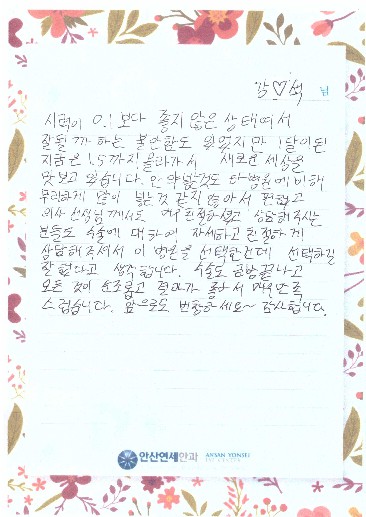 강♡석 님
시력이 0.1보다 좋지 않은 상태여서
잘될까 하는 불안함도 있었지만 1달이 된
지금은 1.5까지 올라가서 새로운 세상을
맛보고 있습니다. 안약 넣는것도 타병원에 비해
무리하게 많이 넣는것 같지 않아서 편했고
의사 선생님께서도 매우 친절하셨고 상담해주시는
분들도 수술에 대하여 자세하고 친절하게
상담해주셔서 이 병원을 선택한건데 선택하길
잘 했다고 생각합니다. 수술도 금방 끝나고
모든 것이 순조롭고 결과가 좋아서 매우만족
스럽습니다. 앞으로도 번창하세요~ 감사합니다.
안산연세안과 ANSAN YONSEI
EYE CENTER